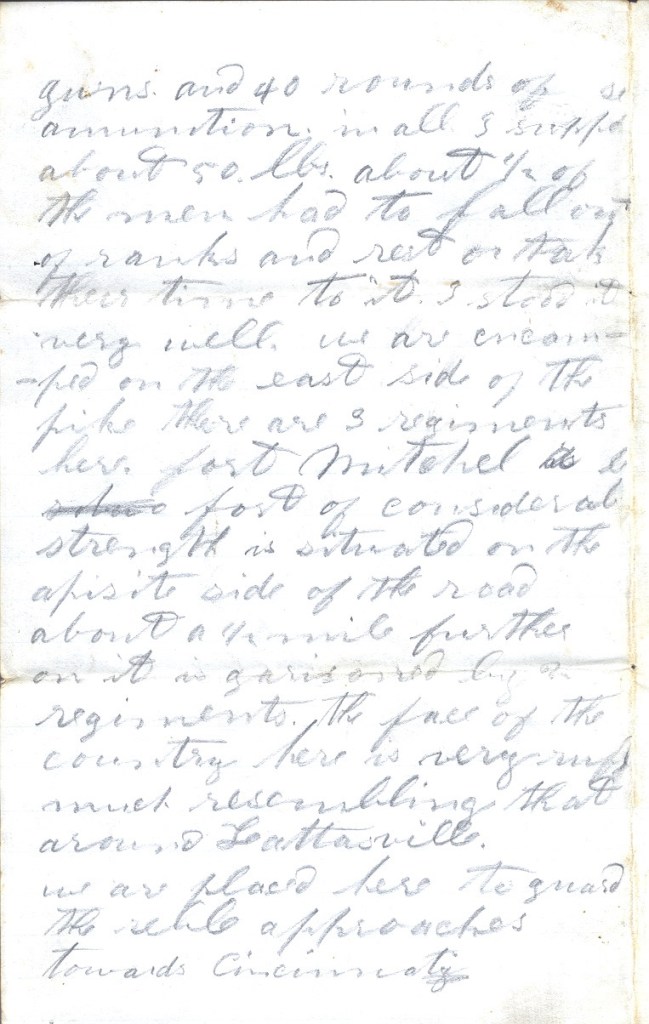 guns. and 40 rounds of
amunition. in all I suppo
about 50. lbs. about 1/2 of
the men had to fall out
of ranks and rest or tak
their time to it. I stood it
very well. we are encam-
-ped on the east side of the
pike there are 3 regiments
here. fort Mitchel
fort of considerabl
strength is situated on the
apisite side of the road
about a 1/2 mile further
on it is garisoned by 2
regiments. the face of the
country here is very ruf
much resembling that
around Lattasville.
we are placed here to guard
the reble approaches
towards Cincinnati